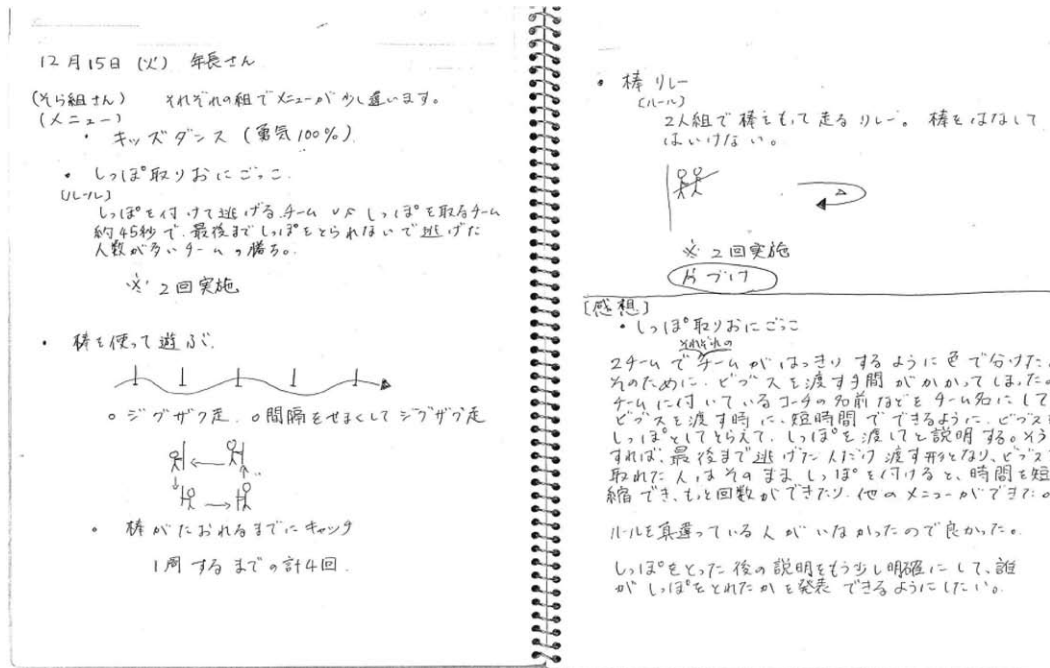 12月15日(火) 年長さん
(そら組さん) それぞれの組でメニューが少し違います。
(メニュー)
・ キッズダンス (勇気100%)
・ しっぽ取りおにごっこ.
[ルール]
しっぽを付けて逃げる.チーム VS しっぽを取るチーム
約45秒で、最後までしっぽをとられないで逃げた
人数が多いチームの勝ち。
※ 2回実施
・ 棒を使って遊ぶ.
○ジグザグ走. ○間隔をせまくしてジグザグ走
○ 棒がたおれるまでにキャッチ
1周するまでの計4回.
・ 棒リレー
[ルール]
2人組で棒をもって走るリレー。棒をはなして
はいけない。
※ 2回実施
片づけ
[感想]
・しっぽ取りおにごっこ
それぞれの
2チームでチームがはっきりするように色で分けた
そのために、ビブスを渡す手間がかかってしまった
チームに付いているコーチの名前などをチーム名にして
ビブスを渡す時に、短時間でできるように、ビブス
しっぽとしてとらえて、しっぽを渡してと説明する。そう
すれば、最後まで逃げた人だけ渡す形となり、ビブス
取れた人はそのまましっぽを付けると、時間を短
縮でき、もっと回数ができたり、他のメニューができた。
ルールを真違っている人がいなかったので良かった。
しっぽをとった後の説明をもう少し明確にして、誰
がしっぽをとれたかを発表できるようにしたい。